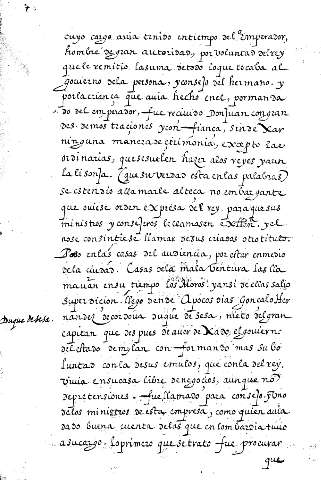 cuyo cargo auia tenido en tiempo del Emperador,
hombre de gran autoridad, por voluntad del rey
que le remitio la suma de todo lo que tocaba al
gouierno de la persona, y consejo del hermano. y
por la crianca que auia hecho en el, por manda
do del emperador, fue reciuido Don Juan con gran
des demostraciones y con fianca, sin dexar
ninguna manera de cerimonia, excepto las
ordinarias, que se suelen hazer a los reyes y aun
la lisonja. (que su verdad esta en las palabras)
se estendio a llamarle alteca no embargante
que ouiese orden expresa del rey. para que sus
ministros y consejeros le llamasen exª. y el
no se consintiese llamar de sus criados otro titulo.
Poso en las casas del audiencia, por estar en medio
de la ciudad. Casas de la mala ventura las lla
mauan en su tiempo los Moros. y ansi de ellas salio
su perdicion. llego dende a pocos dias Goncalo Her
nandez de Cordova duque de Sesa, nieto del gran
Duque de Sese.
capitan que despues de auer dexado, el gouierno
del estado de mylan con formando mas su vo
luntad con la de sus emulos, que con la del rey.
viuia en su casa libre de negocios, aunque no
de pretensiones. fue llamado para consejo. y uno
de los ministros de esta empresa, como quien auia
dado buena cuenta de las que en lombardia tuuo
a su cargo. Lo primero que se trato fue procurar
que